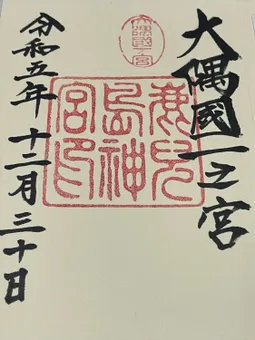 大隅國一之宮
大隅國一宮
鹿兒
島神
宮印
令和五年十二月三十日